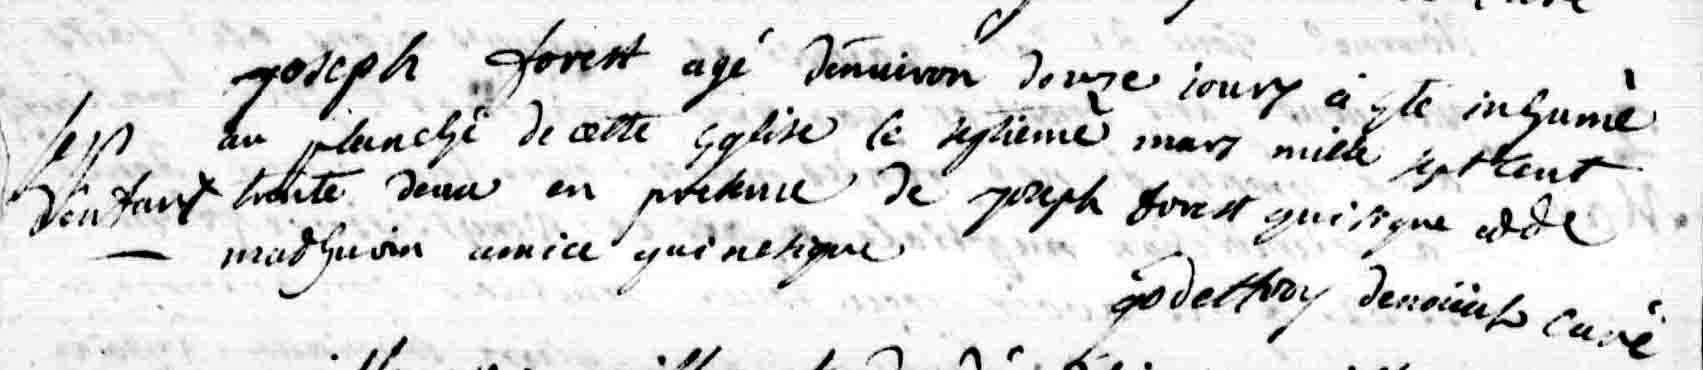 joseph forest agé denuiron douze iours à yte inhumè
au planché de cette Eglise le septiemè mars mille sept cent
d'enfant trente deux en presence de joseph forest qui signe et de
mathurin amice qui ne signe
godeffroy curé